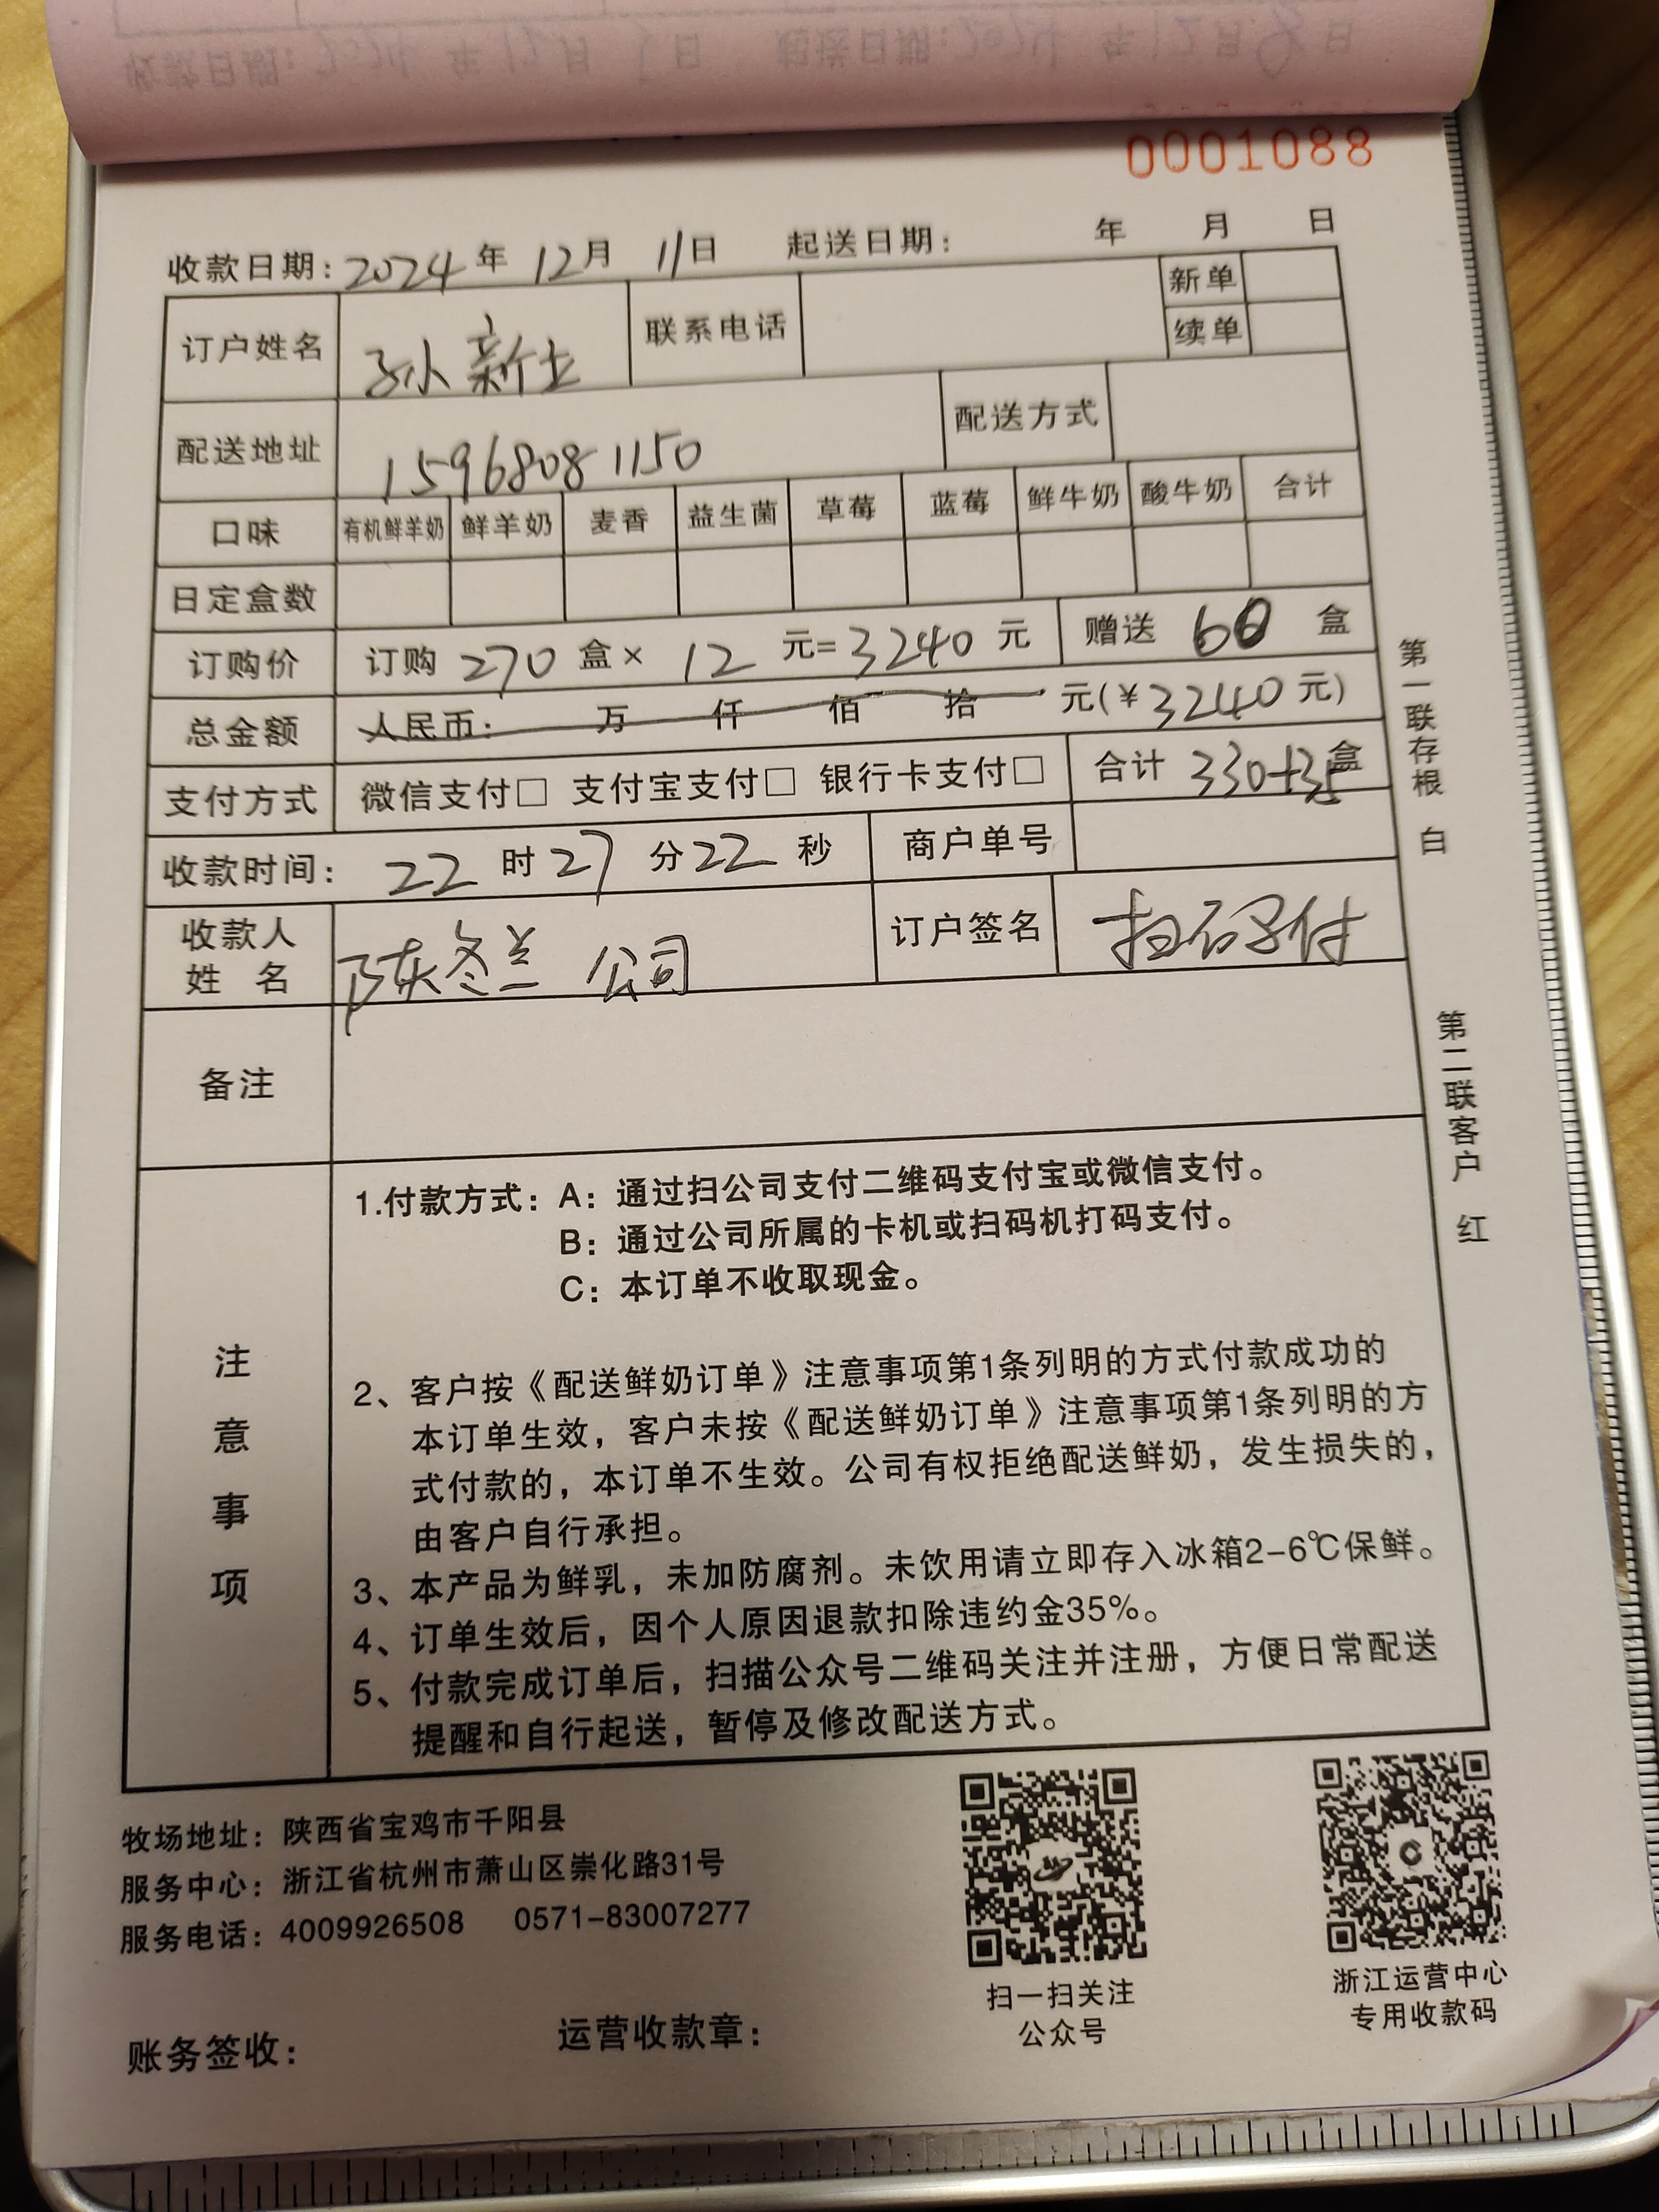 收款日期: 2024 年 12 月 5 日 起送日期: 2024 年 12 月 8 日
0001088
收款日期: 2024 年 12 月 11 日 起送日期: 年 月 日
订户姓名 孙新土 联系电话 新单
续单
配送地址 15968081150 配送方式
口味 有机鲜羊奶 鲜羊奶 麦香 益生菌 草莓 蓝莓 鲜牛奶 酸牛奶 合计
日定盒数
订购价 订购 270 盒× 12 元= 3240 元 赠送 60 盒
总金额 人民币: 万 仟 佰 拾 元(¥ 3240 元)
支付方式 微信支付□ 支付宝支付□ 银行卡支付□ 合计 330+35 盒
收款时间: 22 时 27 分 22 秒 商户单号
收款人
姓 名 陈冬兰 公司 订户签名 扫码付
备注
注意事项
1.付款方式: A: 通过扫公司支付二维码支付宝或微信支付。
B: 通过公司所属的卡机或扫码机打码支付。
C: 本订单不收取现金。
2、客户按《配送鲜奶订单》注意事项第1条列明的方式付款成功的
本订单生效,客户未按《配送鲜奶订单》注意事项第1条列明的方
式付款的,本订单不生效。公司有权拒绝配送鲜奶,发生损失的,
由客户自行承担。
3、本产品为鲜乳,未加防腐剂。未饮用请立即存入冰箱2-6℃保鲜。
4、订单生效后,因个人原因退款扣除违约金35%。
5、付款完成订单后,扫描公众号二维码关注并注册,方便日常配送
提醒和自行起送,暂停及修改配送方式。
第一联存根 白
第二联客户 红
牧场地址: 陕西省宝鸡市千阳县
服务中心: 浙江省杭州市萧山区崇化路31号
服务电话: 4009926508 0571-83007277
扫一扫关注
公众号
浙江运营中心
专用收款码
账务签收:
运营收款章: